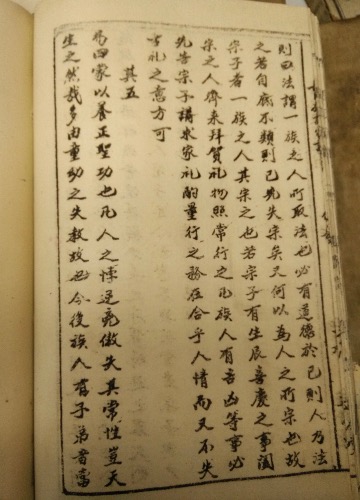 則曰法謂一族之人所取法也必有道德於己則人乃法
之若自底不類則已先失宗矣又何以為人之所宗也故
宗子者一族之人其宗之也若宗子有生辰喜慶之事闔
宗之人齊来拜賀礼物照常行之凡族人有吉凶等事必
先告宗子講求家礼酌量行之務在合乎人情而又不失
古礼之意方可
其五
易曰蒙以養正聖功也凡人之悖逆兇傲失其常性豈天
生之然哉多由童幼之失教故也今後族人有子弟者當